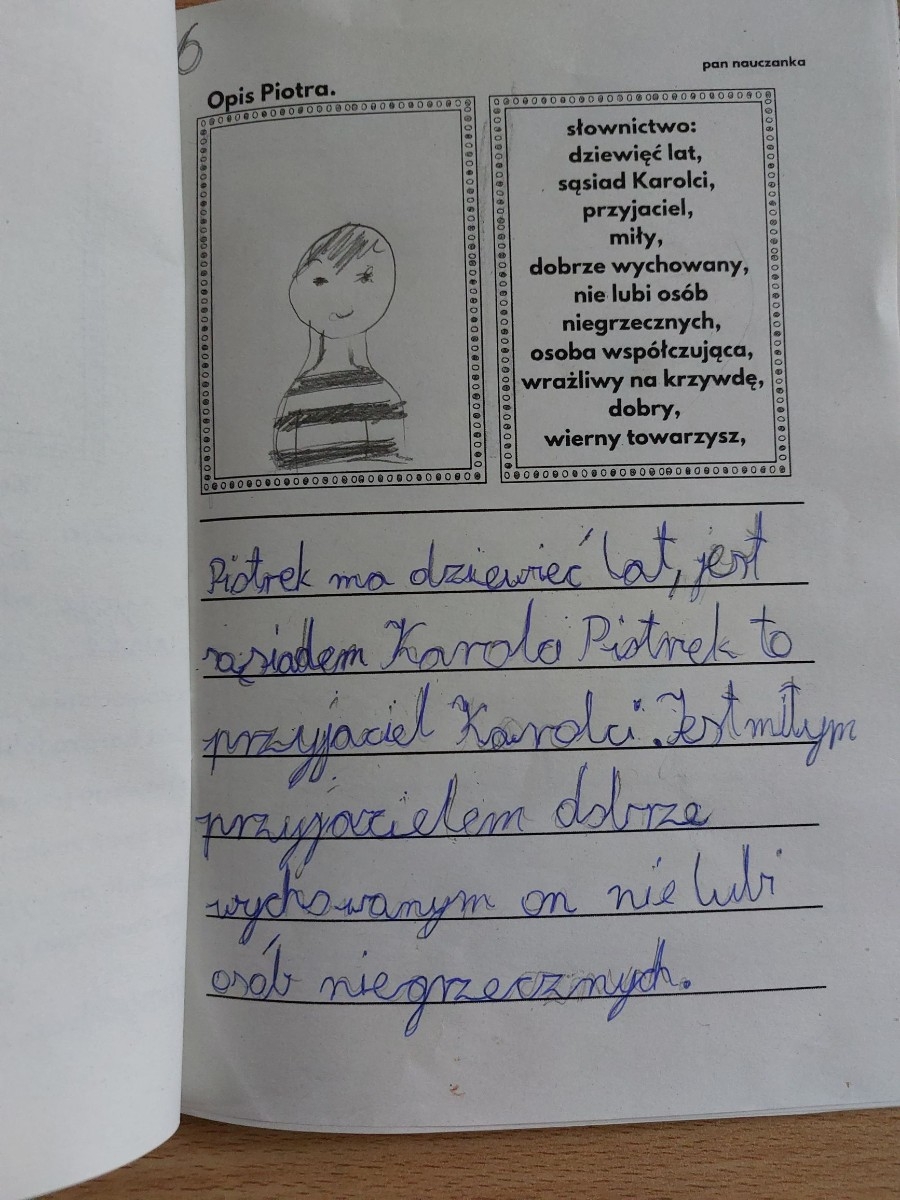 6
pan nauczanka
Opis Piotra.
słownictwo:
dziewięć lat,
sąsiad Karolci,
przyjaciel,
miły,
dobrze wychowany,
nie lubi osób
niegrzecznych,
osoba współczująca,
wrażliwy na krzywdę,
dobry,
wierny towarzysz,
Piotrek ma dziewięć lat, jest
sąsiadem Karola Piotrek to
przyjaciel Karolci. Jest miłym
przyjacielem dobrze
wychowanym on nie lubi
osób niegrzecznych.